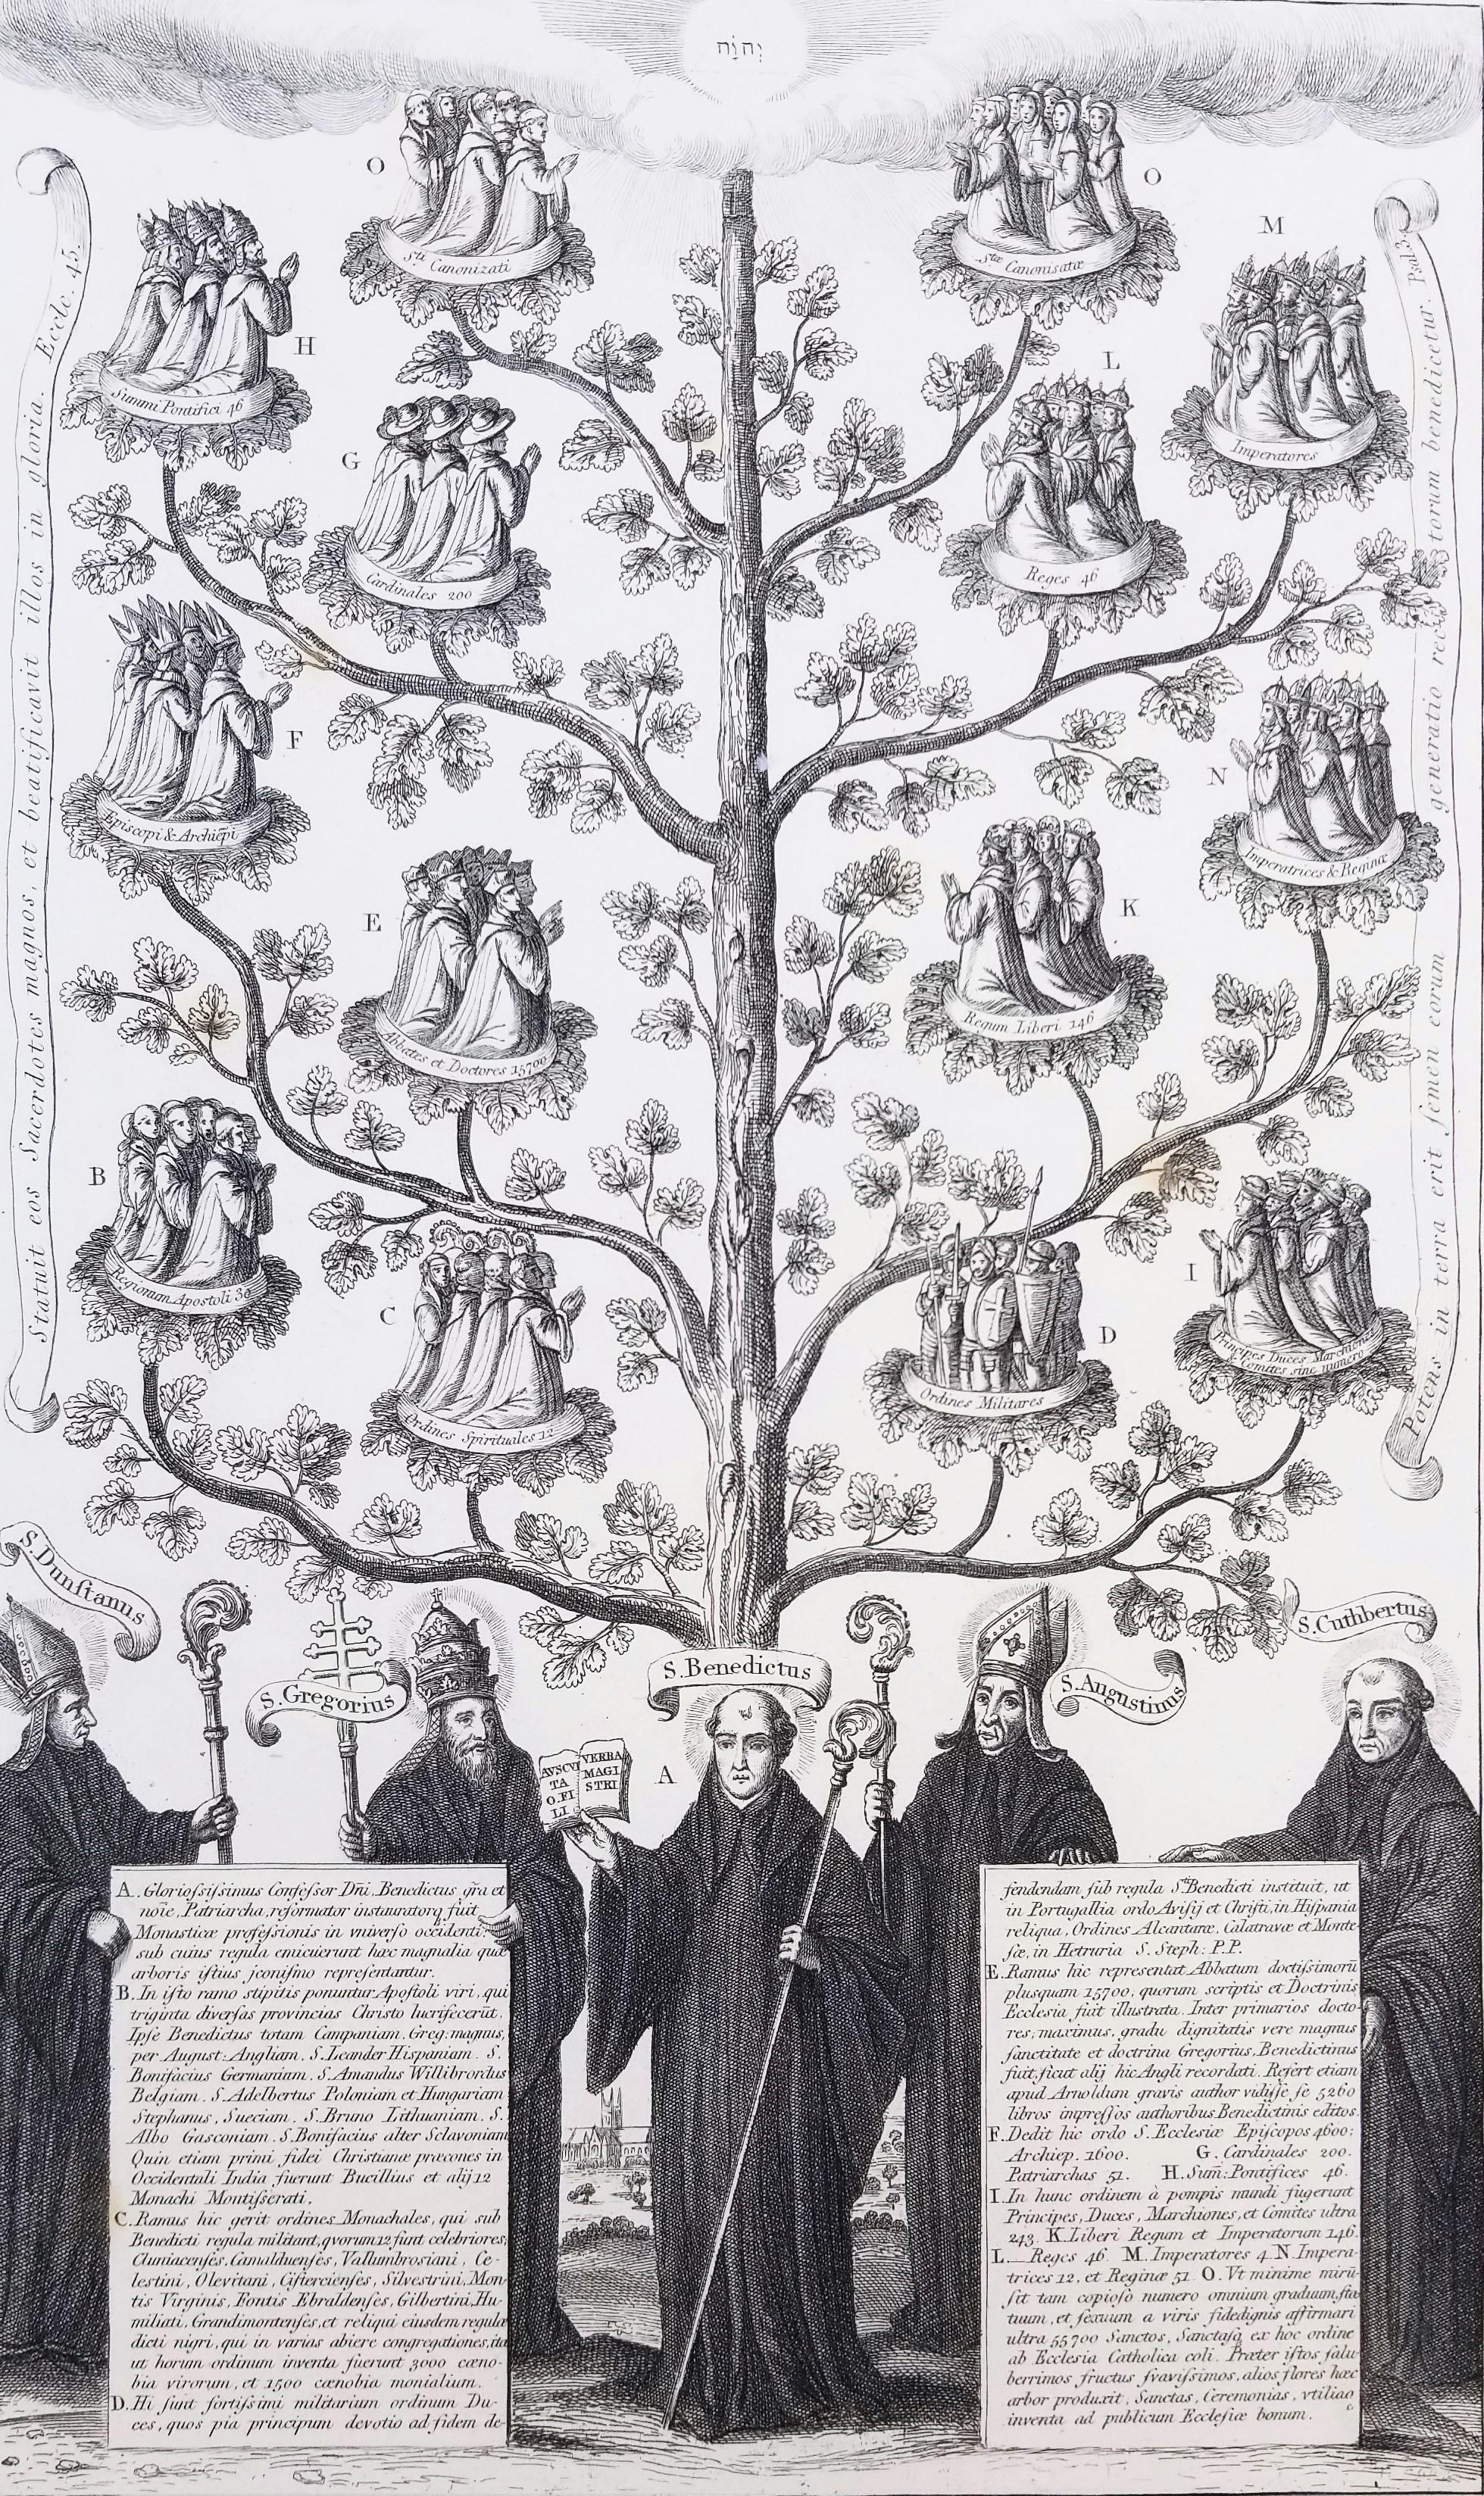 יְהוָֹה
O
O
Sti Canonizati
Stæ Canonisatæ
M
H
L
Summi Pontifici 46
Imperatores
G
Cardinales 200
Reges 46
F
N
Episcopi & Archiepi
Imperatrices & Reginæ
E
K
Abbates et Doctores 15700
Regum Liberi 146
B
I
Regionum Apostoli 30
C
D
Principes Duces Marchiones
Comites sine numero
Ordines Militares
Ordines Spirituales 12
Statuit eos Sacerdotes magnos, et beatificavit illos in gloria. Eccle. 45.
Potens in terra erit semen eorum generatio rectorum benedicetur. Psal
S. Dunstanus
S. Gregorius
S. Benedictus
S. Augustinus
S. Cuthbertus
A
AVSCVL
TA
O FI
LI
VERBA
MAGI
STRI
A. Gloriosissimus Confessor Dñi Benedictus gr̃a et
noĩe, Patriarcha, reformator instauratorq fuit
Monasticæ professionis in vniverso occidenti:
sub cuius regula emicuerunt hæc magnalia quæ
arboris istius jconismo representantur.
B. In isto ramo stipitis ponuntur Apostoli viri, qui
triginta diversas provincias Christo lucrifecerūt.
Ipse Benedictus totam Campaniam. Greg: magnus,
per August: Angliam. S. Leander Hispaniam. S.
Bonifacius Germaniam. S. Amandus Willibrordus
Belgiam. S. Adelbertus Poloniam et Hungariam
Stephanus, Sueciam. S. Bruno Lithuaniam. S.
Albo Gasconiam. S. Bonifacius alter Sclavoniam
Quin etiam primi fidei Christianæ præcones in
Occidentali India fuerunt Bucillius et alij 12
Monachi Montisserati.
C. Ramus hic gerit ordines Monachales, qui sub
Benedicti regula militant, qvorum 12 sunt celebriores;
Cluniacenses, Camalduenses, Vallumbrosiani, Ce-
lestini, Olevitani, Cistercienses, Silvestrini, Mon-
tis Virginis, Fontis Ebraldenses, Gilbertini, Hu-
miliati, Grandimontenses, et reliqui eiusdem regulæ
dicti nigri, qui in varias abiere congregationes, ita
ut horum ordinum inventa fuerunt 3000 cæno-
bia virorum, et 1500 cænobia monialium.
D. Hi sunt fortissimi militarium ordinum Du-
ces, quos pia principum devotio ad fidem de-
fendendam sub regula Sti Benedicti instituit, ut
in Portugallia ordo Avisij et Christi, in Hispania
reliqua, Ordines Alcantaræ, Calatravæ et Monte-
sæ, in Hetruria S. Steph: P.P.
E. Ramus hic representat Abbatum doctissimorū
plusquam 15700, quorum scriptis et Doctrinis
Ecclesia fuit illustrata. Inter primarios docto-
res, maximus, gradu dignitatis vere magnus
sanctitate et doctrina Gregorius, Benedictinus
fuit, sicut alij hic Angli recordati. Refert etiam
apud Arnoldum gravis author vidisse se 5260
libros impressos authoribus Benedictinis editos.
F. Dedit hic ordo S. Ecclesiæ Episcopos 4600;
Archiep. 1600. G. Cardinales 200.
Patriarchas 51. H. Sum̃: Pontifices 46.
I. In hunc ordinem à pompis mundi fugerunt
Principes, Duces, Marchiones, et Comites ultra
243. K. Liberi Regum et Imperatorum 146.
L. Reges 46. M. Imperatores 4. N. Impera-
trices 12, et Reginæ 51. O. Vt minime mirū
sit tam copioso numero omnium graduum, sta-
tuum, et sexuum a viris fidedignis affirmari
ultra 55700 Sanctos, Sanctasq ex hoc ordine
ab Ecclesia Catholica coli. Præter istos salu-
berrimos fructus svavissimos, alios flores hæc
arbor produxit, Sanctas, Ceremonias, vtiliaq
inventa ad publicum Ecclesiæ bonum.